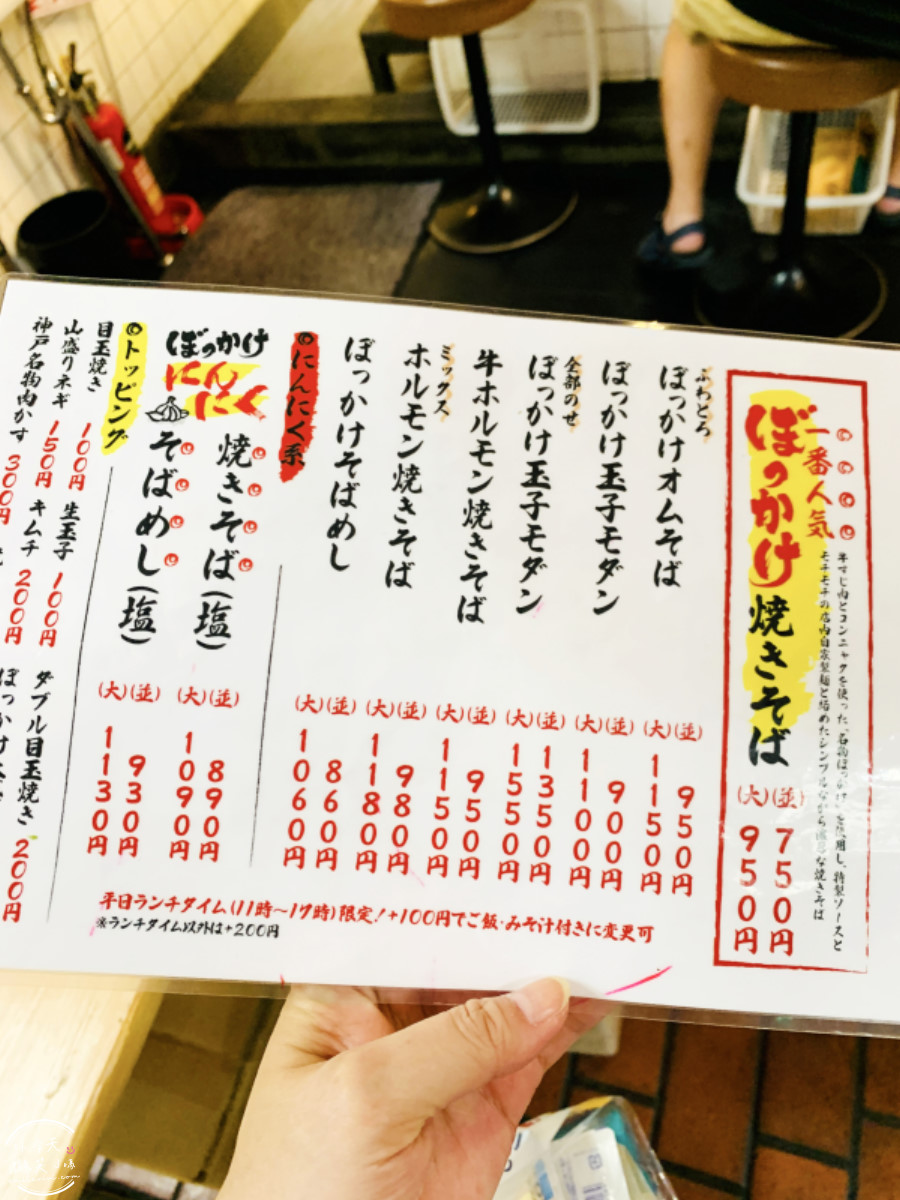 一番人気
ぼっかけ焼きそば
牛すじ肉とコンニャクを使った「名物ぼっかけ」を使用し、特製ソースと
モチモチの店内自家製麺と絡めたシンプルながら
な焼きそば
(並)750円
(大)950円
ふわとろ
ぼっかけオムそば
(並)950円
(大)1150円
ぼっかけ玉子モダン
(並)900円
(大)1100円
全部のせ
ぼっかけ玉子モダン
(並)1350円
(大)1550円
牛ホルモン焼きそば
(並)950円
(大)1150円
ミックス
ホルモン焼きそば
(並)980円
(大)1180円
ぼっかけそばめし
(並)860円
(大)1060円
◎にんにく系
ぼっかけ
にんにく
焼きそば(塩)
(並)890円
(大)1090円
そばめし(塩)
(並)930円
(大)1130円
◎トッピング
目玉焼き 100円
生玉子 100円
山盛りネギ 150円
キムチ 200円
ダブル目玉焼き 200円
神戸名物肉かす 300円
ぼっかけ
平日ランチタイム(11時〜17時)限定!+100円でご飯・みそ汁付きに変更可
※ランチタイム以外は+200円